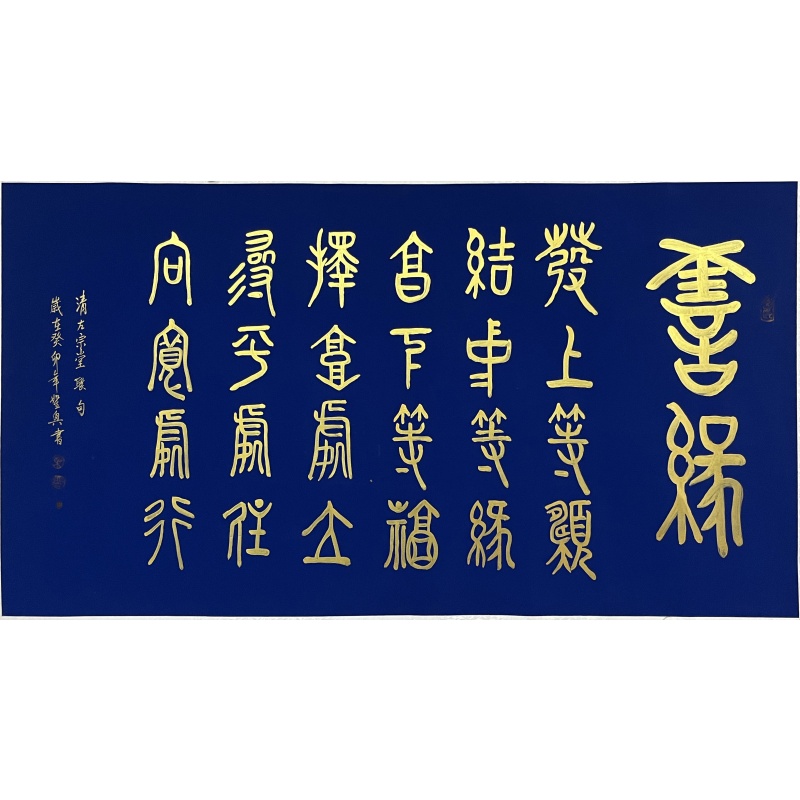 善緣
發上等願
結中等緣
享下等福
擇高處立
尋平處住
向寬處行
清左宗棠聯句
歲在癸卯年書